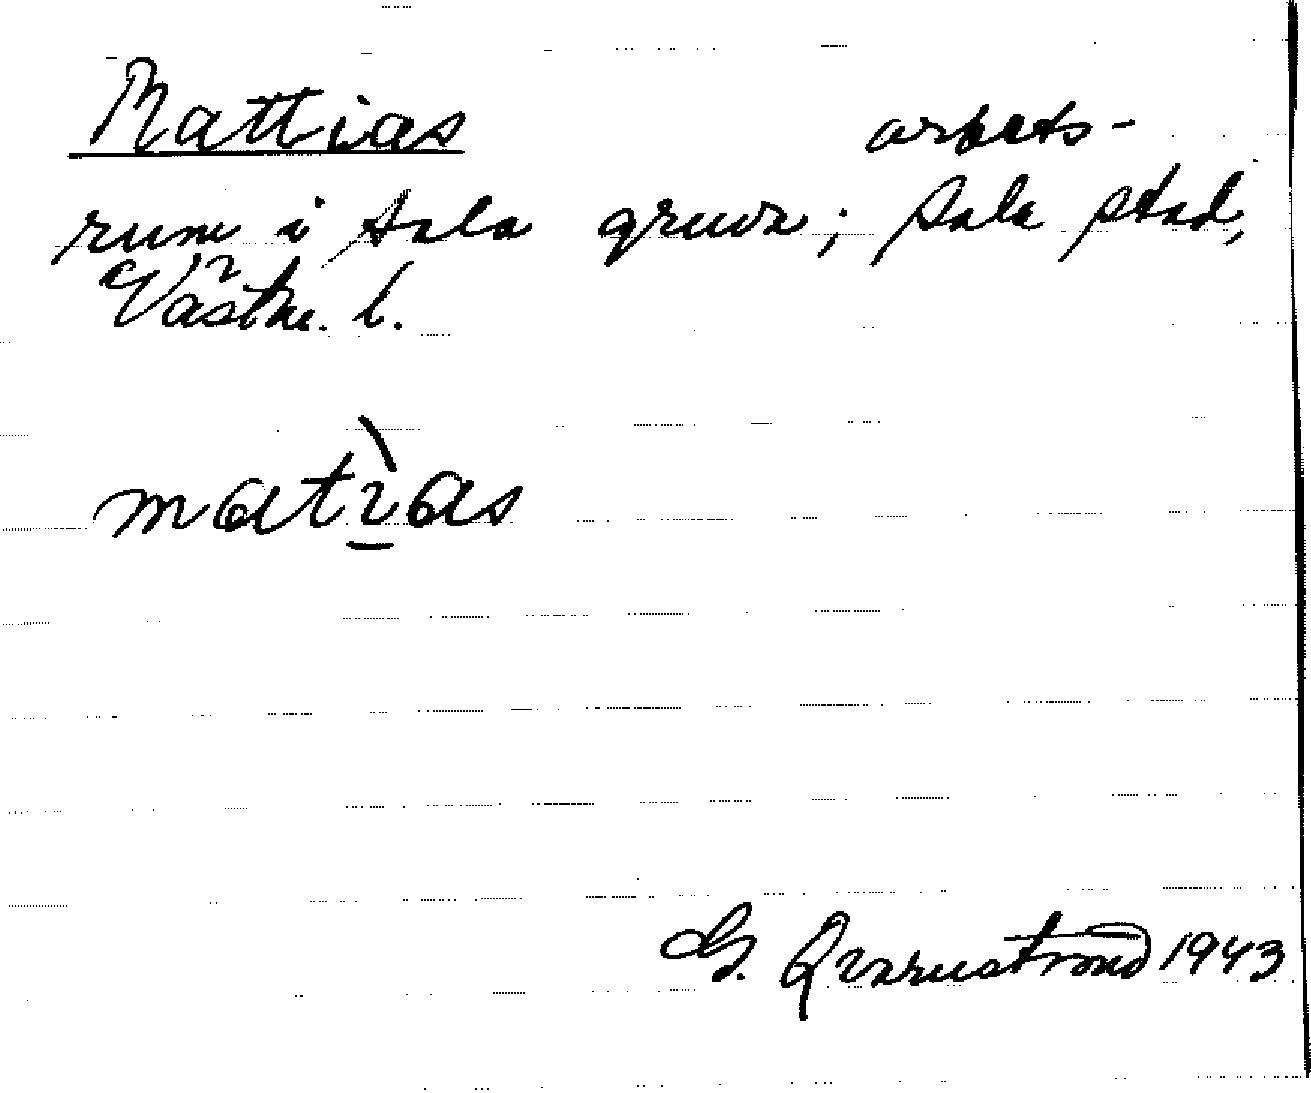 Mattias arbets-
rum i Sala gruva; Sala stad,
Västm. l.
matìas
G. Qvarnström 1943